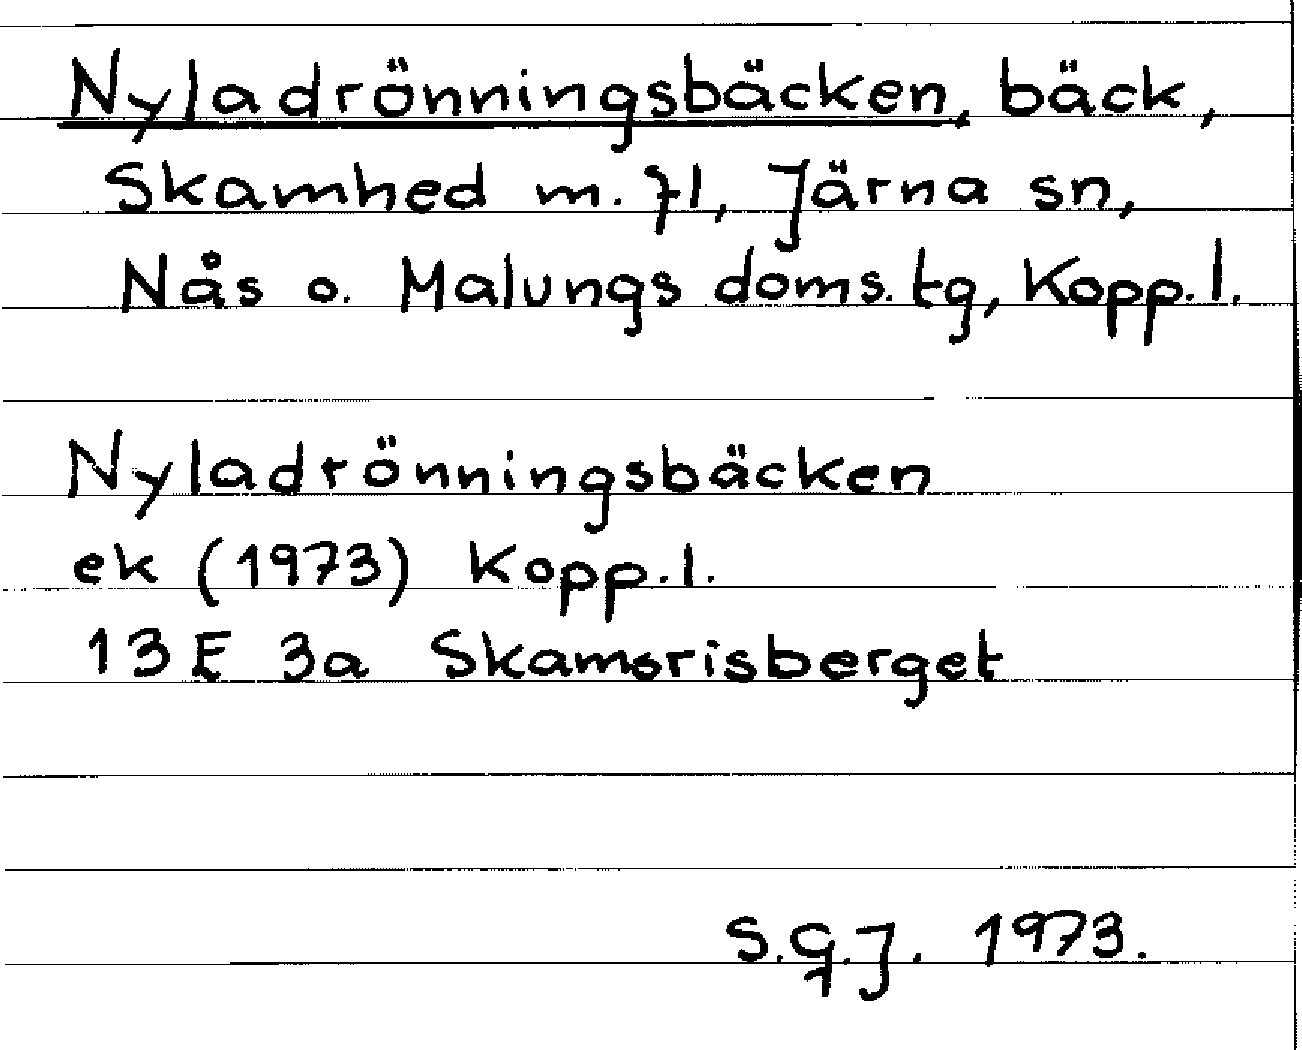 Nyladrönningsbäcken, bäck,
Skamhed m. fl, Järna sn,
Nås o. Malungs doms. tg, Kopp. l.
Nyladrönningsbäcken
ek (1973) Kopp. l.
13 E 3a Skamsrisberget
S.G.J. 1973.